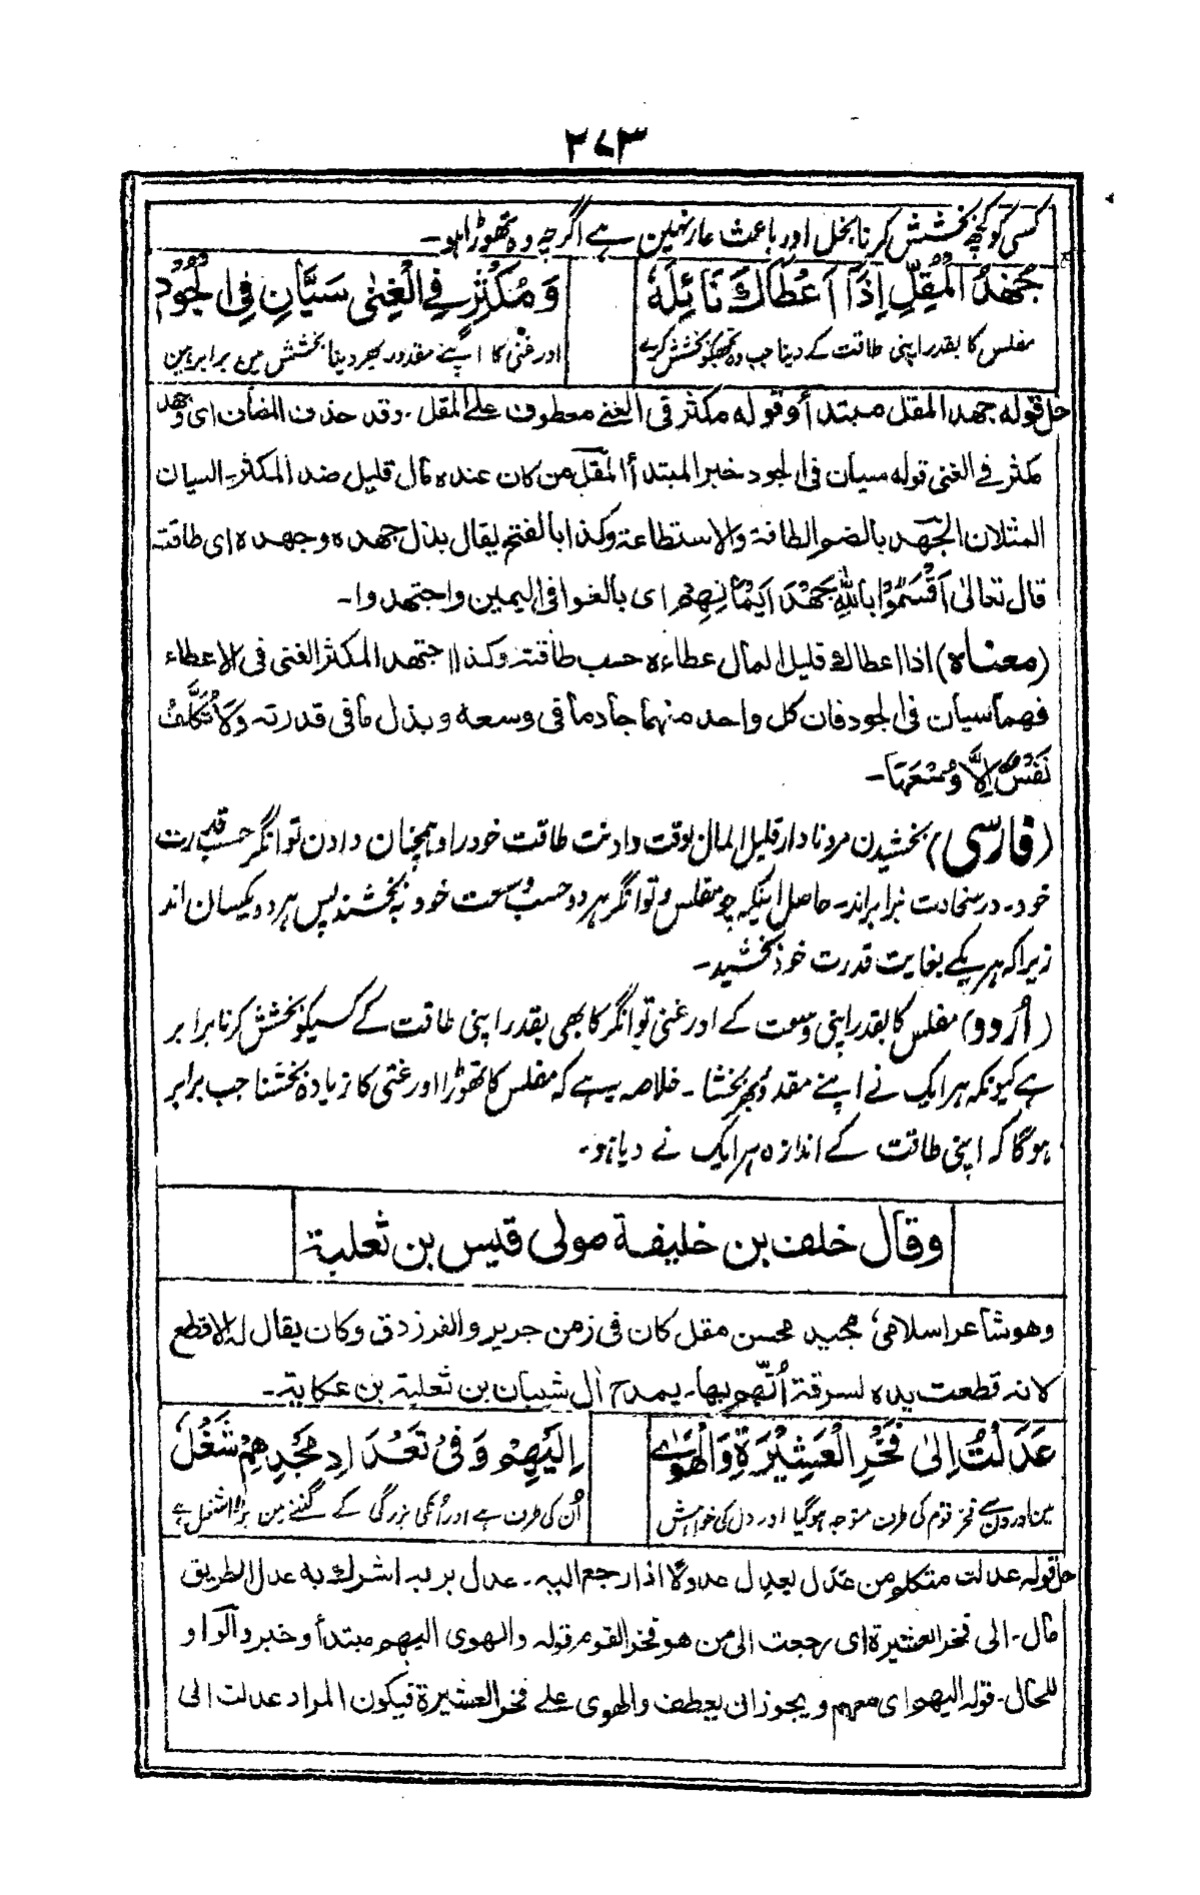 ۲۷۳
کسی کو کچھ بخشش کرنا بخل اور باعث عار نہین ہے اگرچہ وہ تھوڑا ہو۔
جُهْدُ الْمُقِلِّ اِذَآ اَعْطَاكَ نَائِلَهٗ وَمُكْثِرٍ فِي الْغِنٰى سَيَّانِ فِي الْجُوْدِ
مفلس کا بقدر اپنی طاقت کے دینا جب وہ تجھکو بخشش کرے اور غنی کا اپنے مقدور بھر دینا بخشش مین برابر ہین
حل قوله جهد المقل مبتدأ وقوله مكثر فى الغنے معطوف علے المقل۔ وقد حذف المضاف اى وجهد
مكثر فے الغنى قوله سيان فى الجود خبر المبتدأ المقل من كان عنده مال قليل ضد المكثر۔ السيان
المثلان الجهد بالضم الطاقة والاستطاعة وكذا بالفتح يقال بذل جهده وجهده اى طاقته
قال تعالىٰ اَقْسَمُوْا بِاللّٰهِ جَهْدَ اَيْمَانِهِمْ اى بالغوا فى اليمين واجتهدوا۔
(معناه) اذا اعطاك قليل المال عطاءه حسب طاقته وكذا اجتهد المكثر الغنى فى الاعطاء
فهما سيان فى الجود فان كل واحد منهما جاد ما فى وسعه وبذل ما فى قدرته وَلَا تُكَلَّفُ
نَفْسٌ اِلَّا وُسْعَهَا۔
(فارسی) بخشیدن مرد نادار قلیل المال بوقت دادنت طاقت خود را و ہمچنان دادن توانگر حسب قدرت
خود۔ در سخاوت برابراند۔ حاصل اینکہ چو مفلس و توانگر ہردو حسب وسعت خود بخشند پس ہردو یکسان اند
زیراکہ ہریکے بغایت قدرت خود بخشید۔
(اُردو) مفلس کا بقدر اپنی وسعت کے اور غنی توانگر کا بھی بقدر اپنی طاقت کے کسیکو بخشش کرنا برابر
ہے کیونکہ ہر ایک نے اپنے مقدور بھر بخشا۔ خلاصہ یہ ہے کہ مفلس کا تھوڑا اور غنی کا زیادہ بخشنا جب برابر
ہوگا کہ اپنی طاقت کے اندازہ ہر ایک نے دیا ہو۔
وقال خلف بن خليفة مولى قيس بن ثعلبة
وهو شاعر اسلامى مجيد محسن مقل كان فى زمن جرير والفرزدق وكان يقال له الاقطع
لانه قطعت يده لسرقة اُتّهم بها۔ يمدح آل شيبان بن ثعلبة بن عكابة۔
عَدَلْتُ اِلٰى فَخْرِ الْعَشِيْرَةِ وَالْهَوٰے اِلَيْهِمْ وَفِىْ تَعْدَادِ مَجْدِهِمْ شُغْلُ
مین اوردن سے فخر قوم کی طرف متوجہ ہوگیا اور دل کی خواہش اُن کی طرف ہے اور اُنکی بزرگی کے گننے مین بڑا شغل ہے
حل قوله عدلت متكلم من عدل يعدل عدولًا اذا رجع اليه۔ عدل بربه اشرك به عدل الطريق
مال۔ الى فخر العشيرة اى رجعت الى من هو فخر القوم قوله والهوى اليهم مبتدأ وخبر والواو
للحال۔ قوله اليهم اى معهم ويجوز ان يعطف والهوى علے فخر العشيرة فيكون المراد عدلت الى